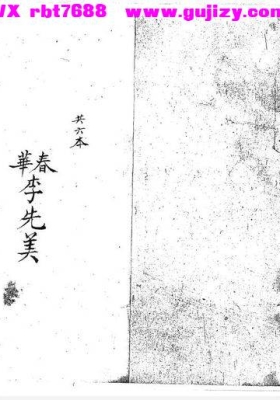 VX rbt7688 www.gujizy.com
共六本
春
華
李先美